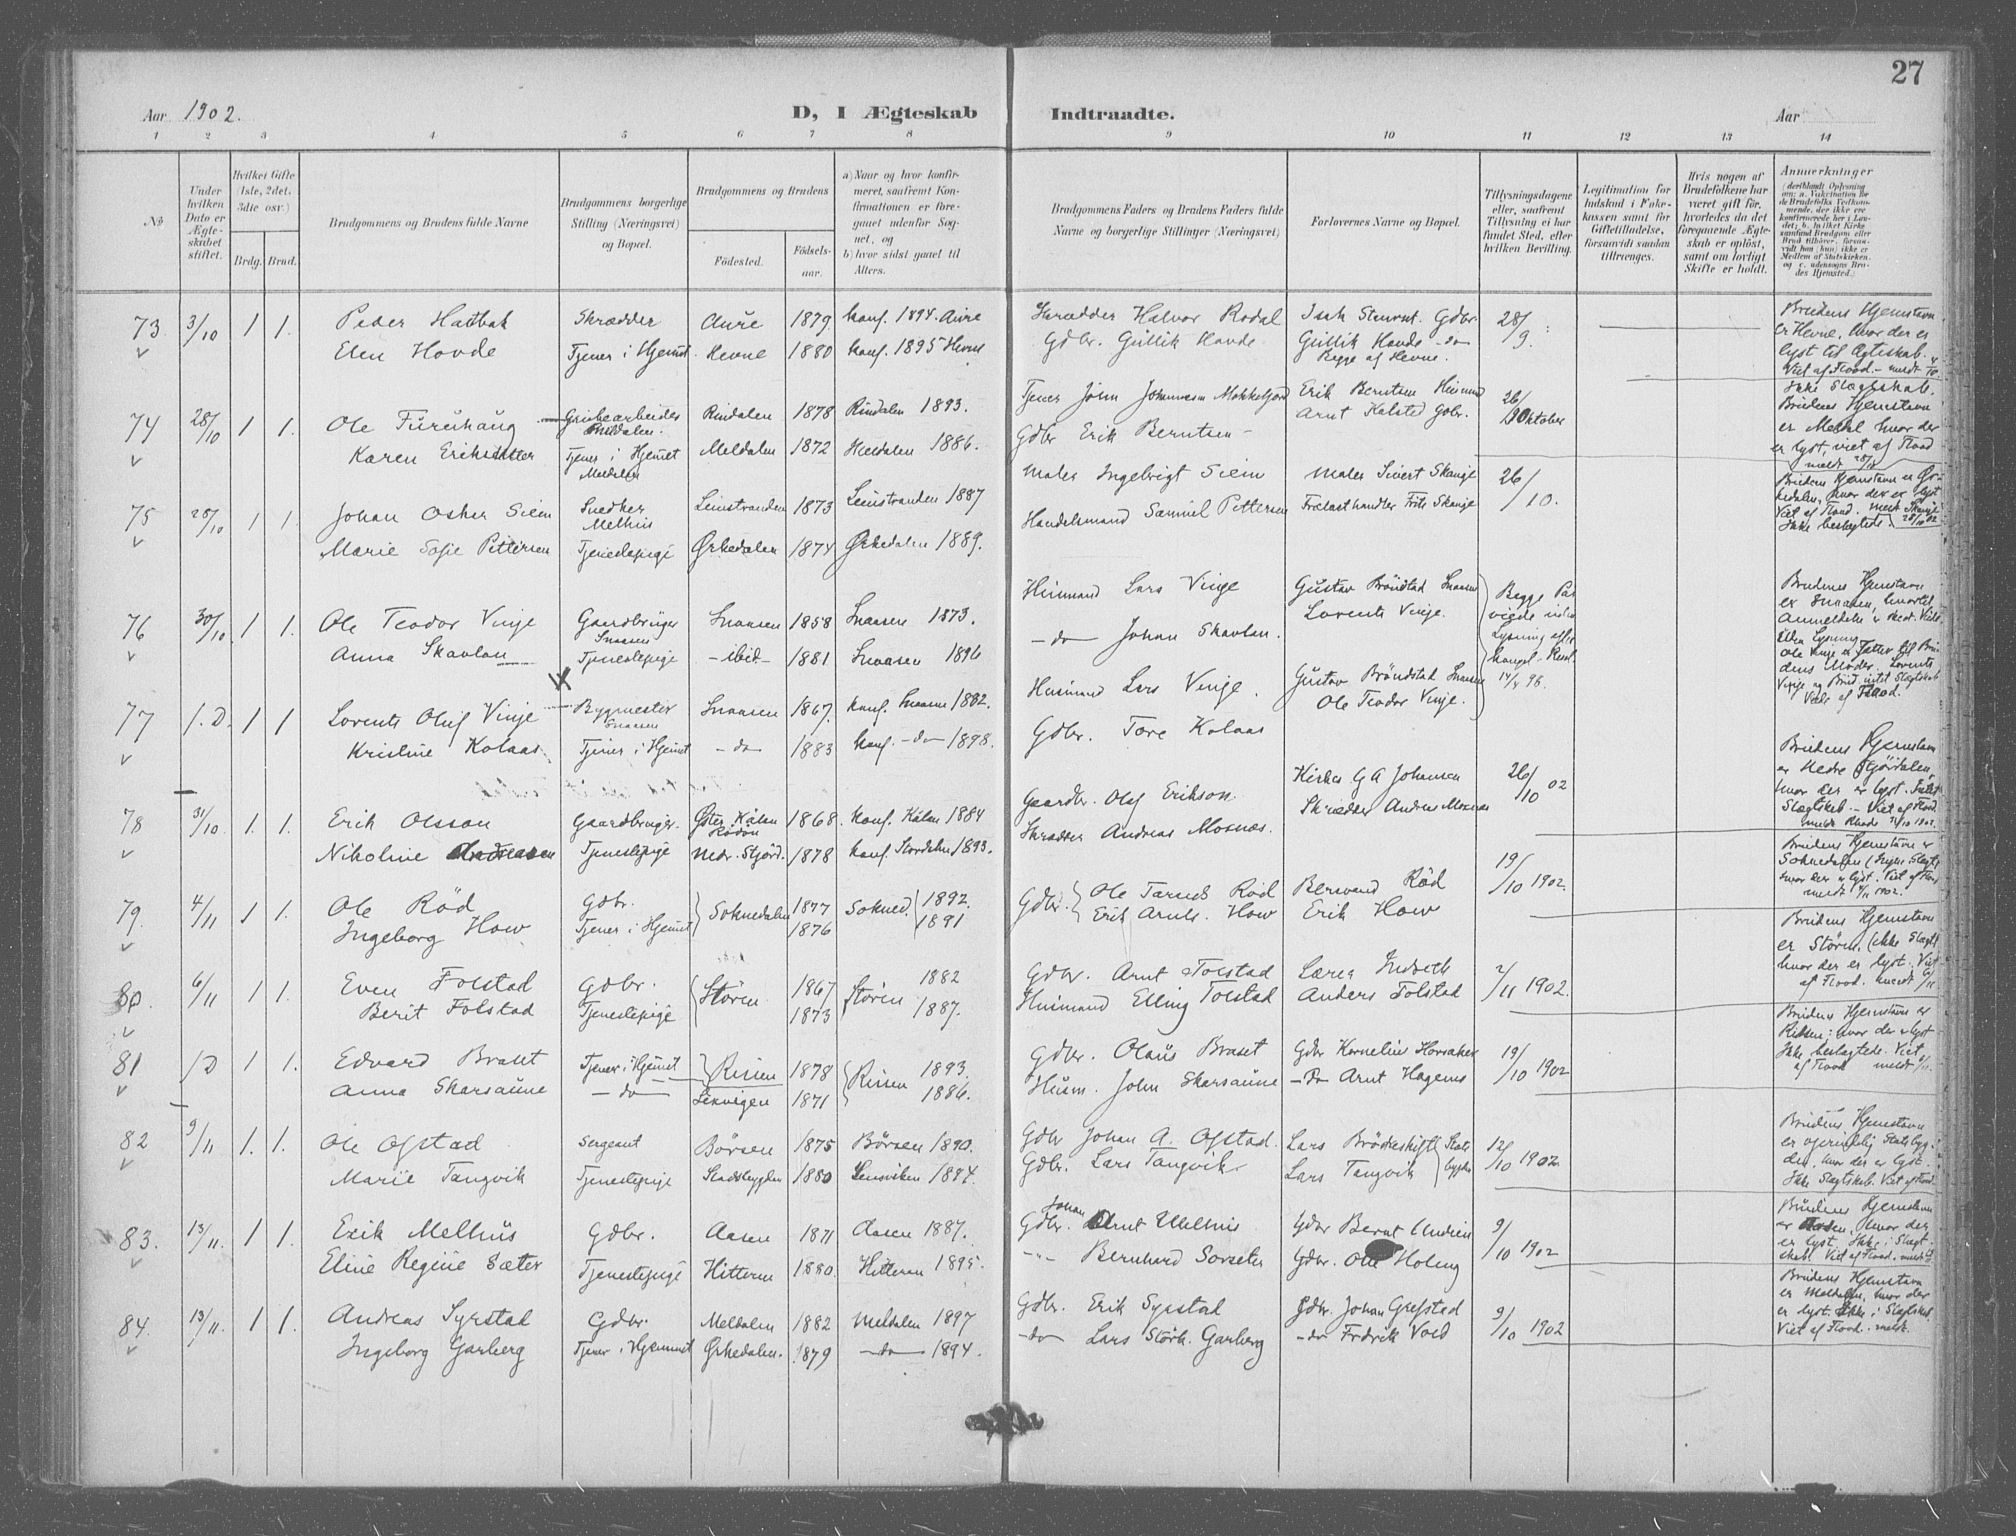 27
Aar 1902.
D, I Ægteskab Indtraadte.
Aar
1 2 3 4 5 6 7 8 9 10 11 12 13 14
No
Under hvilken Dato er Ægteskabet stiftet.
Hvilket Gifte (1ste, 2det, 3die osv.)
Brdg. Brud.
Brudgommens og Brudens fulde Navne
Brudgommens borgerlige Stilling (Næringsvei) og Bopæl.
Brudgommens og Brudens
Fødested.
Fødselsaar.
a) Naar og hvor konfirmeret, saafremt Konfirmationen er foregaaet udenfor Sognet, og
b) hvor sidst gaaet til Alters.
Brudgommens Faders og Brudens Faders fulde Navne og borgerlige Stillinger (Næringsvei)
Forlovernes Navne og Bopæl.
Tillysningsdagene eller, saafremt Tillysning ei har fundet Sted, efter hvilken Bevilling.
Legitimation for Indskud i Enkekassen samt for Giftetilladelse, forsaavidt saadan tiltrænges.
Hvis nogen af Brudefolkene har været gift før, hvorledes da det foregaaende Ægteskab er opløst, samt om lovligt Skifte er holdt.
Anmærkninger
73 3/10 1 1. Peder Hatbak Skrædder Aure 1879 konf. 1894. Aure Skrædder Halvor Rodal Isak Gdbr. 28/9
Elen Hovde Tjener i Hjemmet Hevne 1880 konf. 1895 Hevne Gdbr. Gullik Hovde Gullik Hovde do
Begge af Hevne.
Brudens Hjemstavn er Hevne, hvor der er lyst til Ægteskab. Viet af Flood. meldt 4/10
Ikke Slægtskab.
74 28/10 1 1. Ole Furuhaug Rindalen 1878 Rindalen 1893. Tjener John Erik Berntsen 26/10 Oktober
Karen Eriksdatter Tjener i Hjemmet Meldalen Meldalen 1872 Meldalen 1886. Gdbr Erik Berntsen Arnt Kalsted Gdbr.
Brudens Hjemstavn er Meldal hvor der er lyst, viet af Flood meldt 28/10
75 28/10 1 1. Johan Oskar Siem Snedker Melhus Leinstranden 1873 Leinstranden 1887 Maler Ingebrigt Siem Maler Sivert Skauge 26/10.
Marie Sofie Pettersen Tjenestepige Ørkedalen 1874 Ørkedalen 1889. Handelsmand Samuel Pettersen Frelasthandler Skauge
Brudens Hjemstavn er Ørkedalen, hvor der er lyst Viet af Flood. meldt Skauge 28/10 02 Ikke beslegtede.
76 30/10 1 1. Ole Teodor Vinje Gaardbruger Snaasen Snaasen 1858 Snaasen 1873. Husmand Lars Vinje Gustav Bröndstad Snaasen
Anna Skavlan Tjenestepige ibid 1881 Snaasen 1896 do Johan Skavlan. Lorents Vinje.
Begge Par viede uden Lysning efter 14/4 98.
Brudens Hjemstavn er Snaasen, Uden Lysning Ole Vinje er Fætter til Brudens Moder. Lorents Vinje og Brud intet Slægtskab Viede af Flood.
77 1. D. 1 1 Lorents Oluf Vinje Bygmester Snaasen Snaasen 1867. konf. Snaasen 1882. Husmand Lars Vinje. Gustav Bröndstad Snaasen
Kristine Kolaas Tjener i Hjemmet do 1883 konf. do 1898. Gdbr. Tore Kolaas Ole Teodor Vinje.
78 31/10 1. 1. Erik Olsson Gaardbruger. 1868. konf. Kálen 1884 Gaardbr. Olof Erikson. Kirker G A Johansen 26/10 02
Nikoline Andreasen Tjenestepige Nedr. Stjørd. 1878 konf. Stordalen 1893. Skrædder Andreas Mosnæs. Skrædder Andreas Mosnæs
Brudens Hjemstavn er Nedre Stjørdalen, hvor der er lyst. Intet Slægtskab. Viet af Flood.
79 4/11 1 1. Ole Röd Gdbr. Soknedalen 1877 Sokned. 1892. Gdbr. Ole Röd Röd 19/10 1902.
Ingeborg How Tjener i Hjemmet 1876 1891 Erik Arnts. How Erik How
Brudens Hjemstavn er Soknedalen (Ingen Slægt) hvor der er lyst. Viet af Flood meldt 4/11 1902.
80. 6/11 1 1. Even Folstad Gdbr. Støren 1867 Støren 1882 Gdbr. Arnt Folstad Lærer 2/11 1902.
Berit Folstad Tjenestepige 1873 1887. Husmand Elling Folstad Anders Folstad
Brudens Hjemstavn er Støren. (ikke Slægt) hvor der er lyst. Viet af Flood. meldt 6/11
81 1 D 1 1. Edvard Braset Tjener i Hjemmet Rissen 1878 Rissen 1893. Gdbr. Olaus Braset Gdbr Kornelius 19/10 1902
Anna Skarsaune do 1871 1886. Husm. John Skarsaune do Arnt Hagenes
Brudens Hjemstavn er Rissen: hvor der er lyst. Ikke beslagtede. Viet af Flood meldt
82 9/11 1. 1. Ole Ofstad Sergeant Børsen 1875 Børsen 1890. Gdbr Johan A. Ofstad. Lars 12/10 1902
Marie Tangvik Tjenestepige Stadsbygden 1880 Lensviken 1884. Gdbr. Lars Tangvik Lars Tangvik Stadsbygden
Brudens Hjemstavn er Stadsbygden, hvor der er lyst. Ikke Slægtskab. Viet af Flood.
83. 13/11. 1 1. Erik Melhus Gdbr. Aasen 1871 Aasen 1887. Gdbr. Johan Arnt Melhus Gdbr Bernt 9/10 1902
Eline Regine Sæter Tjenestepige Hitteren 1880. Hitteren 1895. Bernhard Sorseter Gdbr. Ole Holmy
Brudens Hjemstavn er hvor der er lyst. Ikke i Slægtskab. Viet af Flood. meldt
84. 13/11. 1 1. Andreas Syrstad Gdbr. Meldalen 1882 Meldalen 1897 Gdbr. Erik Syrstad Gdbr. Johan Grefstad 9/10 1902
Ingeborg Garberg Tjener i Hjemmet Ørkedalen. 1879 do 1894. do Lars Størk. Garberg do Fredrik Vold
Brudens Hjemstavn er Meldalen, hvor der er lyst. Ikke i Slægtskab. Viet af Flood. meldt.